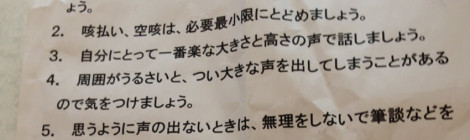 ょう。
2. 咳払い、空咳は、必要最小限にとどめましょう。
3. 自分にとって一番楽な大きさと高さの声で話しましょう。
4. 周囲がうるさいと、つい大きな声を出してしまうことがある
ので気をつけましょう。
5. 思うように声の出ないときは、無理をしないで筆談などを